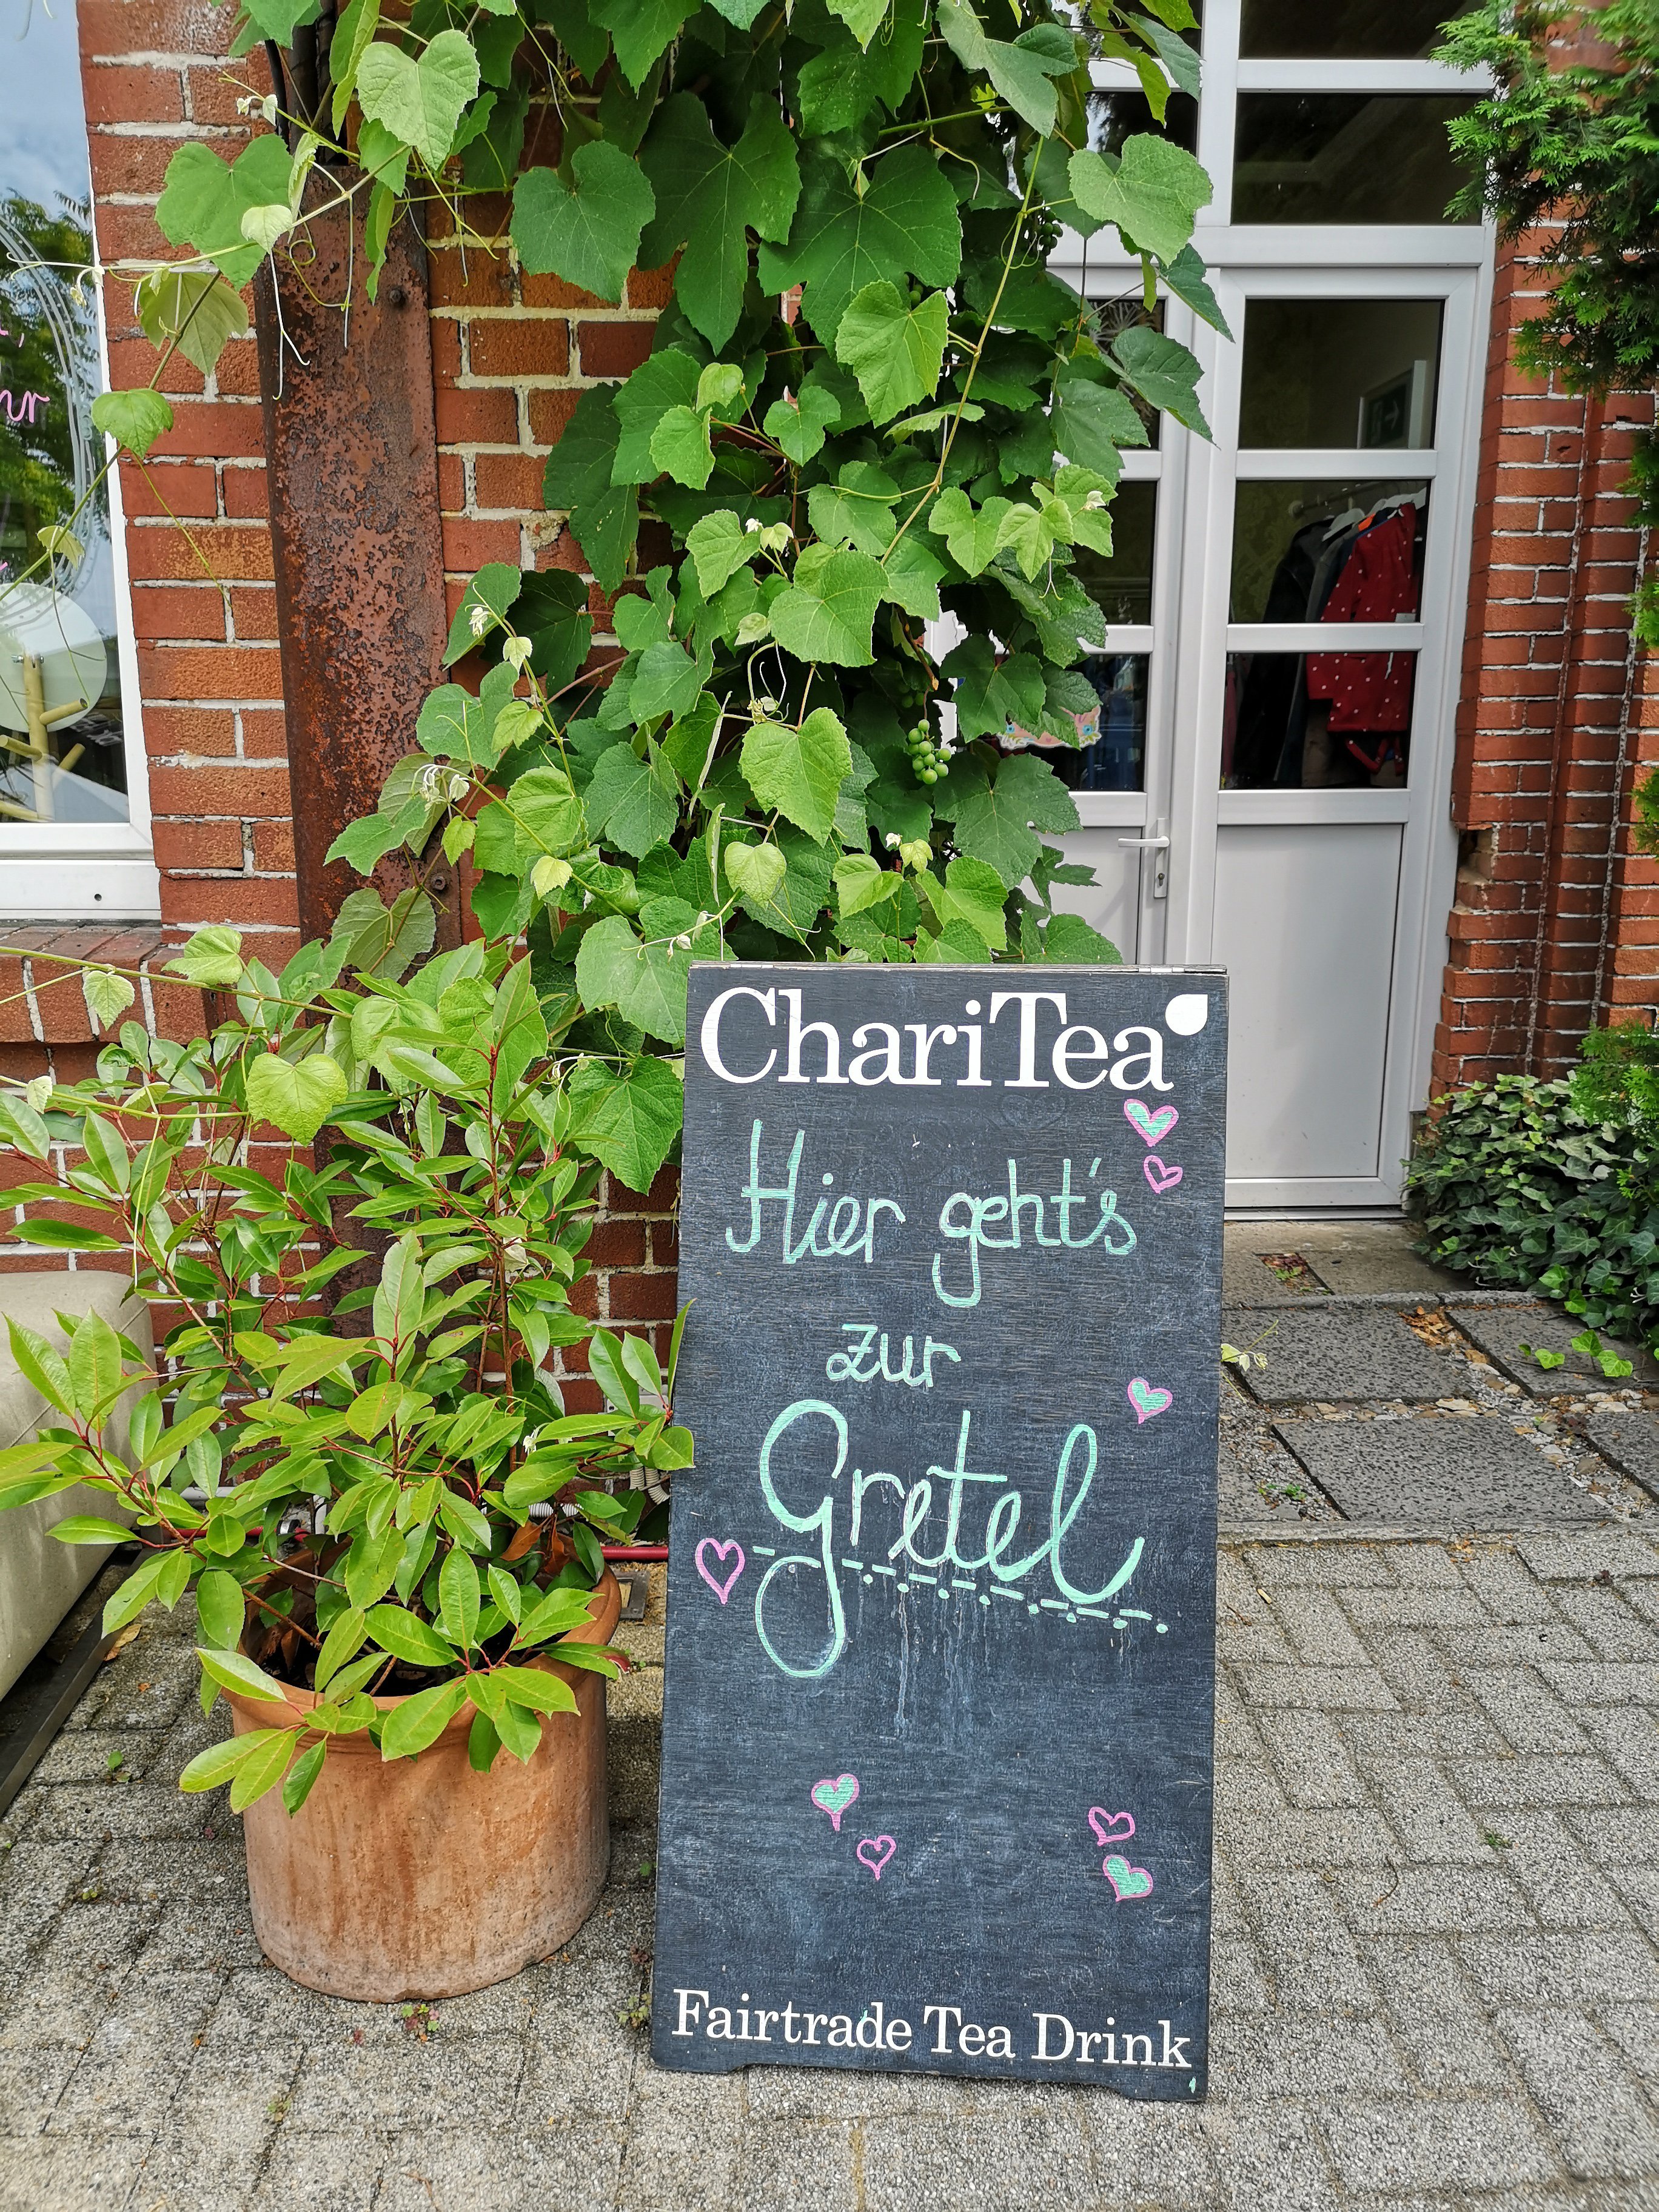 ChariTea
Hier geht's
zur
Gretel
Fairtrade Tea Drink